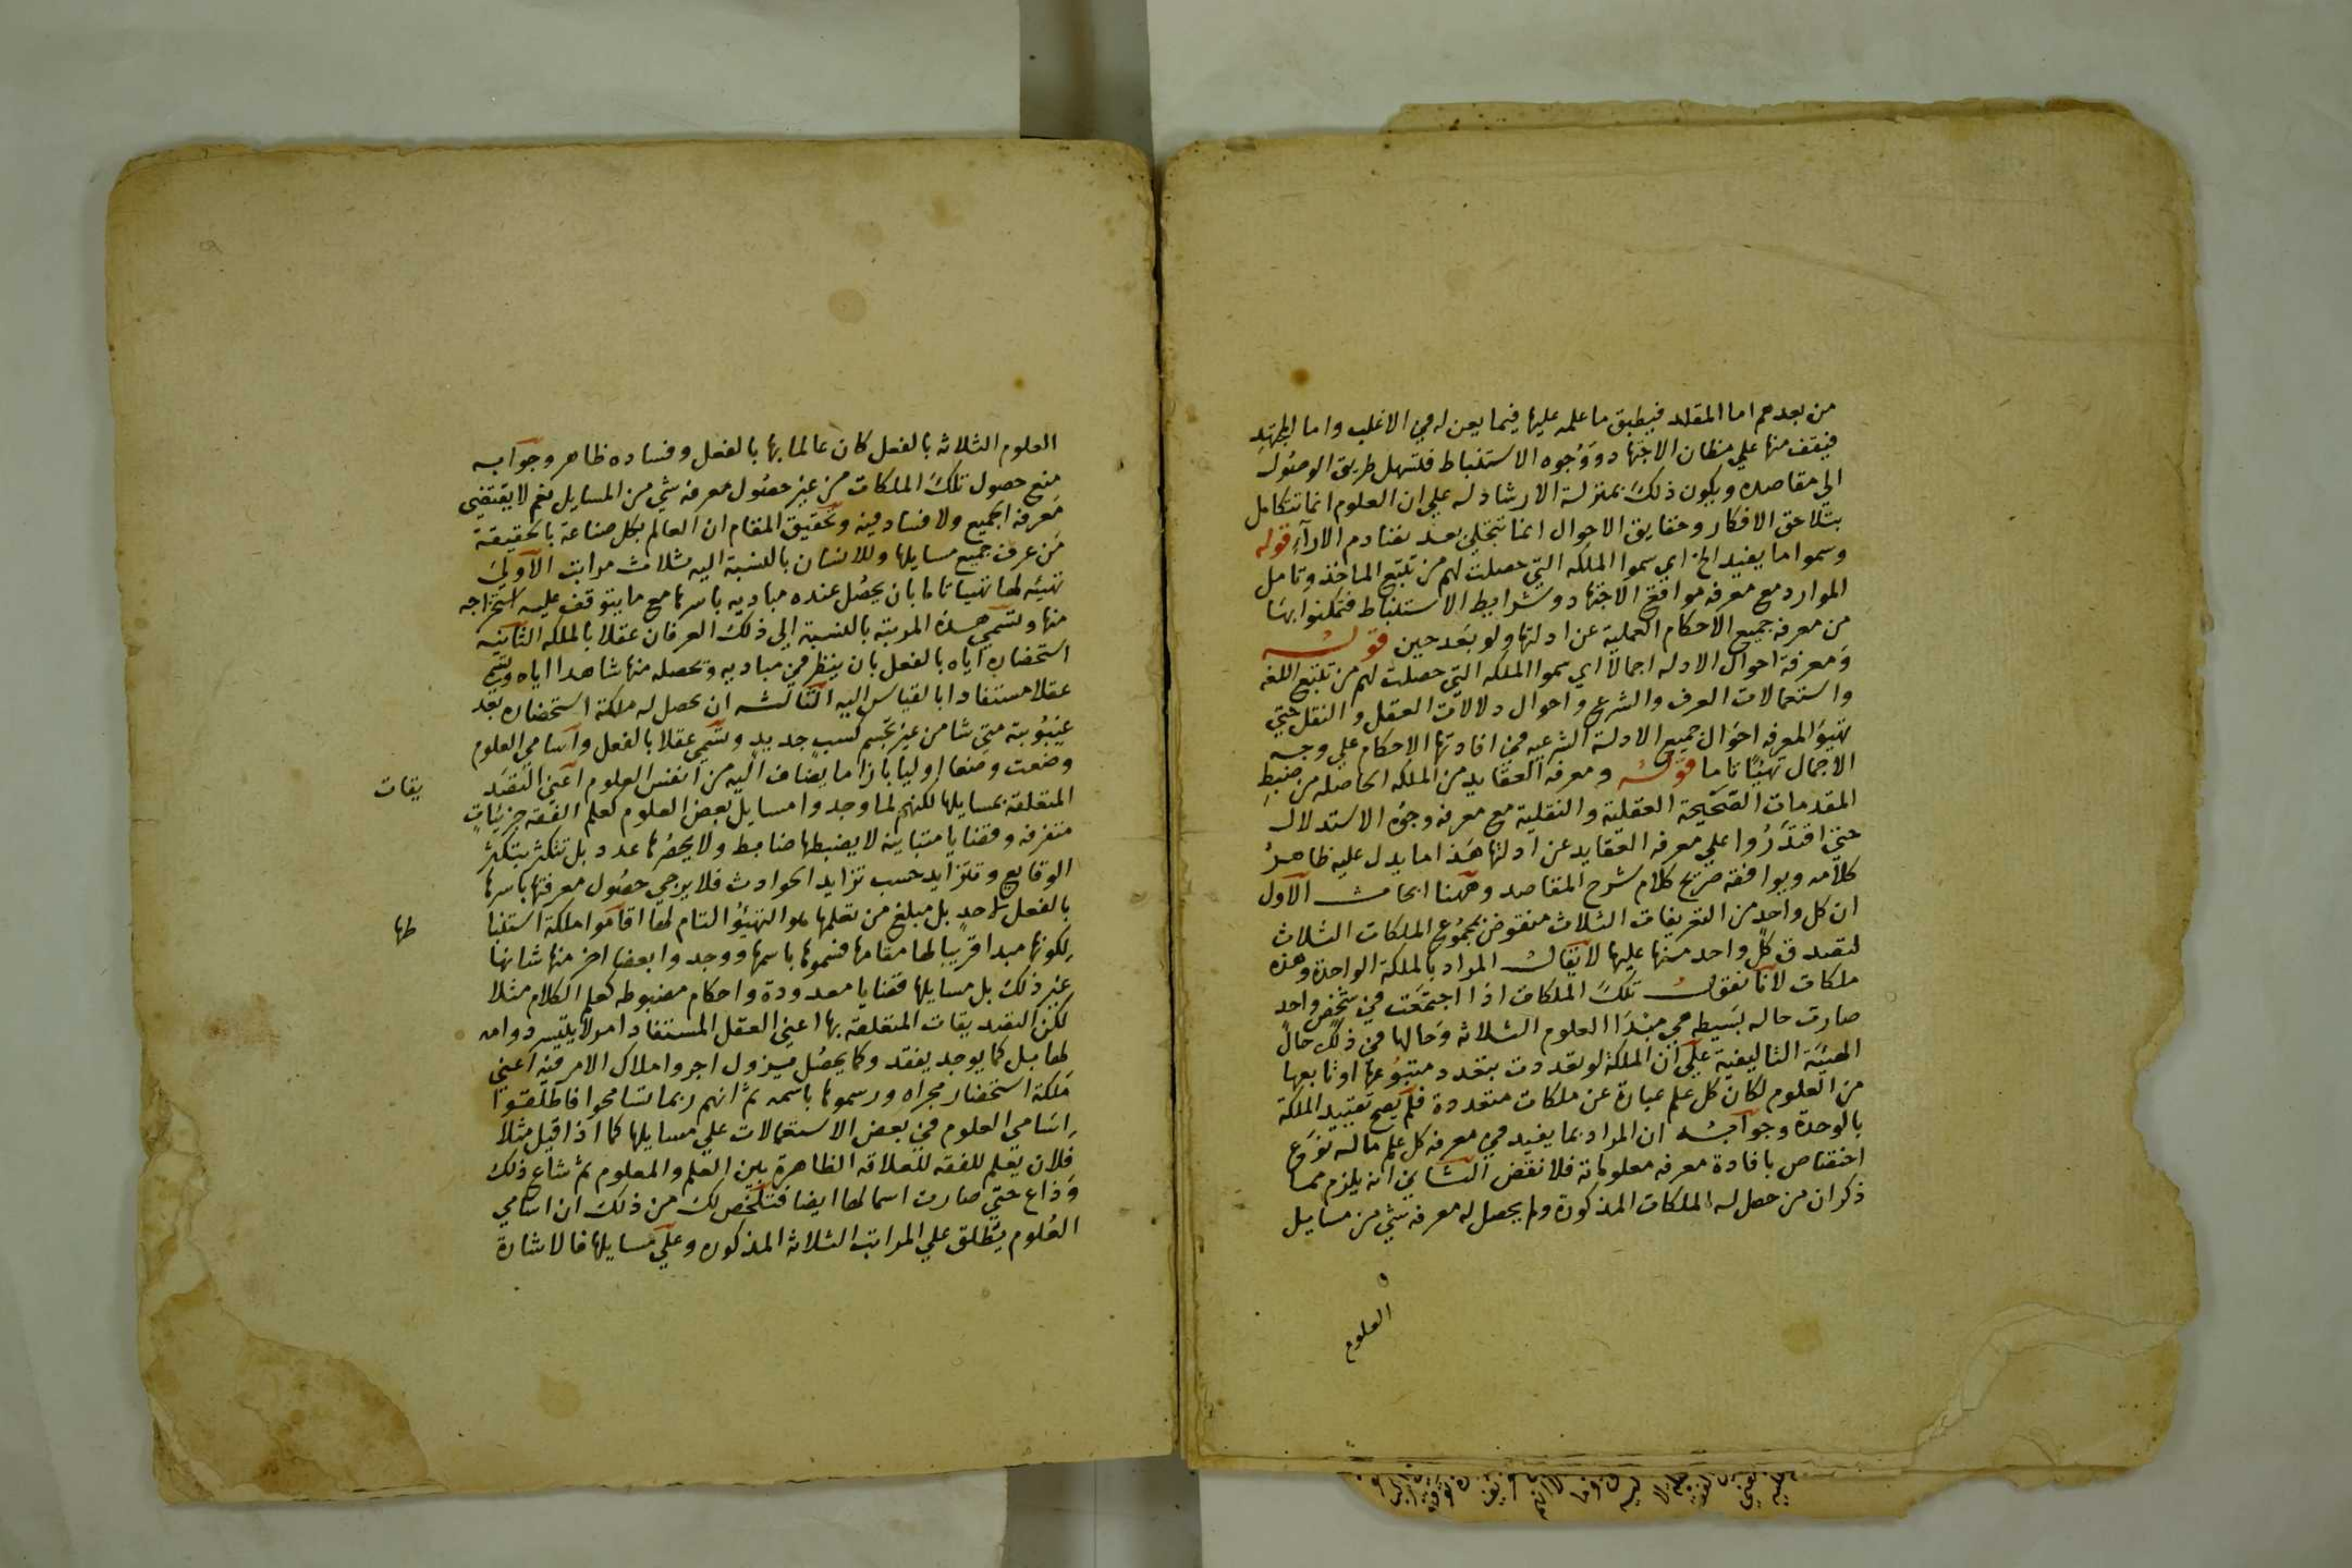 من بعدهم اما المقلد فيطبق ما علمه عليها فيما يعن له في الاغلب واما المجتهد
فيقف منها علي مظان الاجتهاد ووجوه الاستنباط فتسهل طريق الوصول
الي مقاصده ويكون ذلك بمنزلة الارشاد له علي ان العلوم انما تتكامل
بتلاحق الافكار وحقايق الاحوال انما تتجلي بعد تصادم الارآء قوله
وسموا ما يفيد الخ اي سموا الملكه التي حصلت لهم من تتبع الماخذ وتامل
الموارد مع معرفه مواقع الاجتهاد وشرايط الاستنباط فتمكنوا بها
من معرفه جميع الاحكام العملية عن ادلتها ولو بعد حين قوله
ومعرفة احوال الادله اجمالا اي سموا الملكه التي حصلت لهم من تتبع اللغه
واستعمالات العرف والشرع واحوال دلالات العقل والنقل حتي
تهيؤ المعرفه احوال جميع الادلة الشرعيه في افادتها الاحكام علي وجه
الاجمال تهيئا تاما قوله ومعرفه العقايد من الملكه الحاصله من ضبط
المقدمات الصحيحة العقلية والنقلية مع معرفه وجوه الاستدلال
حتي اقتدروا علي معرفه العقايد عن ادلتها هذا ما يدل عليه ظاهر
كلامه ويوافقه صريح كلام شرح المقاصد وههنا ابحاث الاول
ان كل واحد من التعريفات الثلاث منقوض بمجموع الملكات الثلاث
لتصدق كل واحد منها عليها لا يقال المراد بالملكة الواحدة وهذه
ملكات لانا نقول تلك الملكات اذا اجتمعت في شخص واحد
صارت حاله بسيطه هي مبدا العلوم الثلاثه وحالها في ذلك حال
الهيئة التاليفية علي ان الملكة لو تعددت بتعدد متبوعها او تابعها
من العلوم لكان كل علم عبارة عن ملكات متعددة فلم يصح تقييد الملكة
بالوحدة وجوابه ان المراد بما يفيد في معرفه كل علم ماله نوع
اختصاص بافادة معرفه معلوماته فلا نقض الثاني انه يلزم مما
ذكر ان من حصل له الملكات المذكورة ولم يحصل له معرفه شي من مسايل
العلوم
العلوم الثلاثه بالفعل كان عالما بها بالفعل وفساده ظاهر وجوابه
منع حصول تلك الملكات من غير حصول معرفه شي من المسايل نعم لا يقتضي
معرفه الجميع ولا فساد فيه وتحقيق المقام ان العالم بكل صناعة بالحقيقة
من عرف جميع مسايلها وللانسان بالنسبة اليه ثلاث مراتب الاولي
تهيئه لها تهيا تاما بان يحصل عنده مباديه باسرها مع ما يتوقف عليه استخراجه
منها وتسمي هذه المرتبه بالنسبة الي ذلك العرفان عقلا بالملكه الثانية
استحضاره اياه بالفعل بان ينظر في مباديه وتحصله منها شاهدا اياه ويسمي
عقلا مستفادا بالقياس اليه الثالثه ان يحصل له ملكة استحضاره بعد
غيبوبته متي شا من غير تجشم كسب جديد وتسمي عقلا بالفعل واسامي العلوم
وضعت وضعا اوليا بازا ما يضاف اليه من انفس العلوم اعني التصد
يقات
المتعلقة بمسايلها لكنهم لما وجدوا مسايل بعض العلوم كعلم الفقه جزئيات
متفرقه وقضايا متباينه لا يضبطها ضابط ولا يحصرها عدد بل تتكثر بتكثر
الوقايع وتتزايد حسب تزايد الحوادث فلا يرجي حصول معرفتها باسرها
بالفعل لاحد بل مبلغ من تعلمها هو التهيؤ التام لها اقاموا ملكة استنبا
طها
لكونها مبدا قريبا لها مقامها فسموها باسمها ووجدوا بعضا اخر منها شانها
غير ذلك بل مسايلها قضايا معدودة واحكام مضبوطه كعلم الكلام مثلا
لكن التصديقات المتعلقة بها اعني العقل المستفاد امر لا يتيسر دوامه
لها بل كما يوجد يفقد وكما يحصل يزول اجروا ملاك الامر فيه اعني
ملكة استحضار مجراه ورسموها باسمه ثم انهم ربما تسامحوا فاطلقوا
اسامي العلوم في بعض الاستعمالات علي مسايلها كما اذا قيل مثلا
فلان يعلم للفقه للعلاقه الظاهرة بين العلم والمعلوم ثم شاع ذلك
وذاع حتي صارت اسما لها ايضا فتلخص لك من ذلك ان اسامي
العلوم يطلق علي المراتب الثلاثه المذكوره وعلي مسايلها فالاشارة